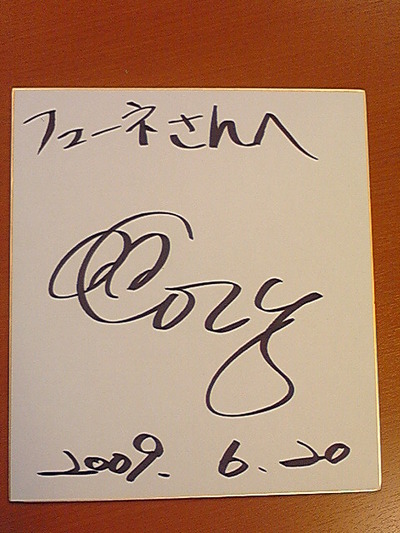 フューネさんへ
Cozy
2009. 6. 20